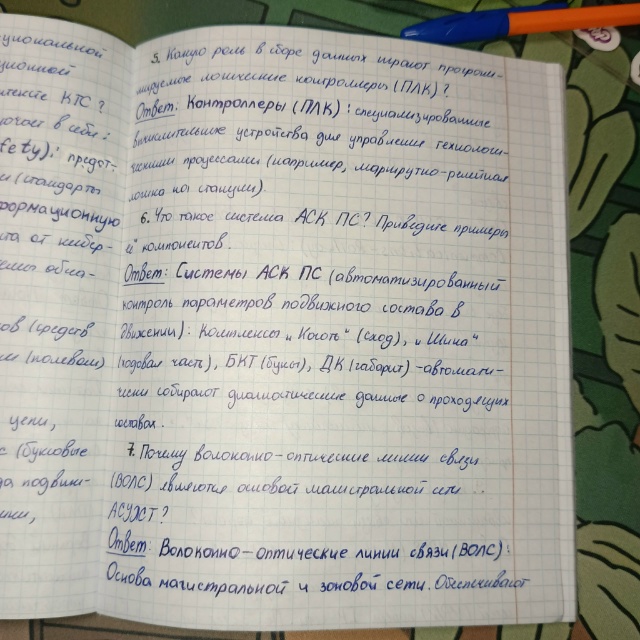 циональной
ционной
нтексте КТС?
ючает в себя:
fety): предот-
и (стандарты
формационную
ита от кибер-
темы обна-
ов (средств
ти (полевом)
цепи,
с (буксовые
да подвиж-
ики,
5. Какую роль в сборе данных играют програм-
мируемое логические контроллеры (ПЛК)?
Ответ: Контроллеры (ПЛК): специализированные
вычислительные устройства для управления технологи-
ческими процессами (например, маршрутно-релейная
логика на станции).
6. Что такое система АСК ПС? Приведите примеры
её компонентов.
Ответ: Системы АСК ПС (автоматизированный
контроль параметров подвижного состава в
движении): Комплексы „Коготь" (сход), „Шина"
(ходовая часть), БКТ (буксы), ДК (габарит) - автомати-
чески собирают диагностические данные о проходящих
составах.
7. Почему волоконно-оптические линии связи
(ВОЛС) являются основой магистральной сети
АСУЖТ?
Ответ: Волоконно-оптические линии связи (ВОЛС):
Основа магистральной и зоновой сети. Обеспечивают